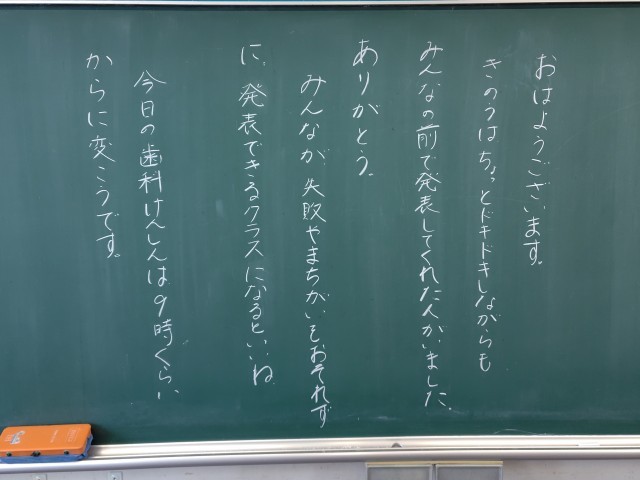 おはようございます。
きのうはちょっとドキドキしながらも
みんなの前で発表してくれた人がいました。
ありがとう。
みんなが、失敗やまちがいもおそれず
に、発表できるクラスになるといいね
今日の歯科けんしんは9時くらい
からに変こうです。